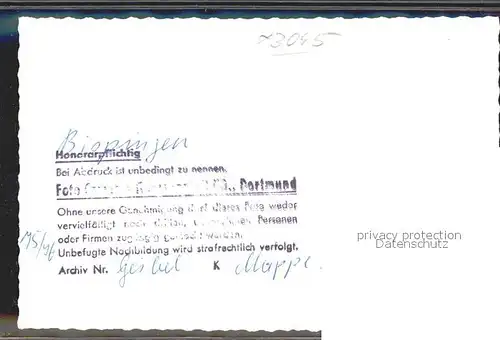 73045
Bispingen
Honorarpflichtig
Bei Abdruck ist unbedingt zu nennen.
Foto Dortmund
Ohne unsere Genehmigung darf dieses Foto weder
vervielfältigt noch dritten Personen
oder Firmen zugängig gemacht werden.
Unbefugte Nachbildung wird strafrechtlich verfolgt.
Archiv Nr. K Mappe.
privacy protection
Datenschutz